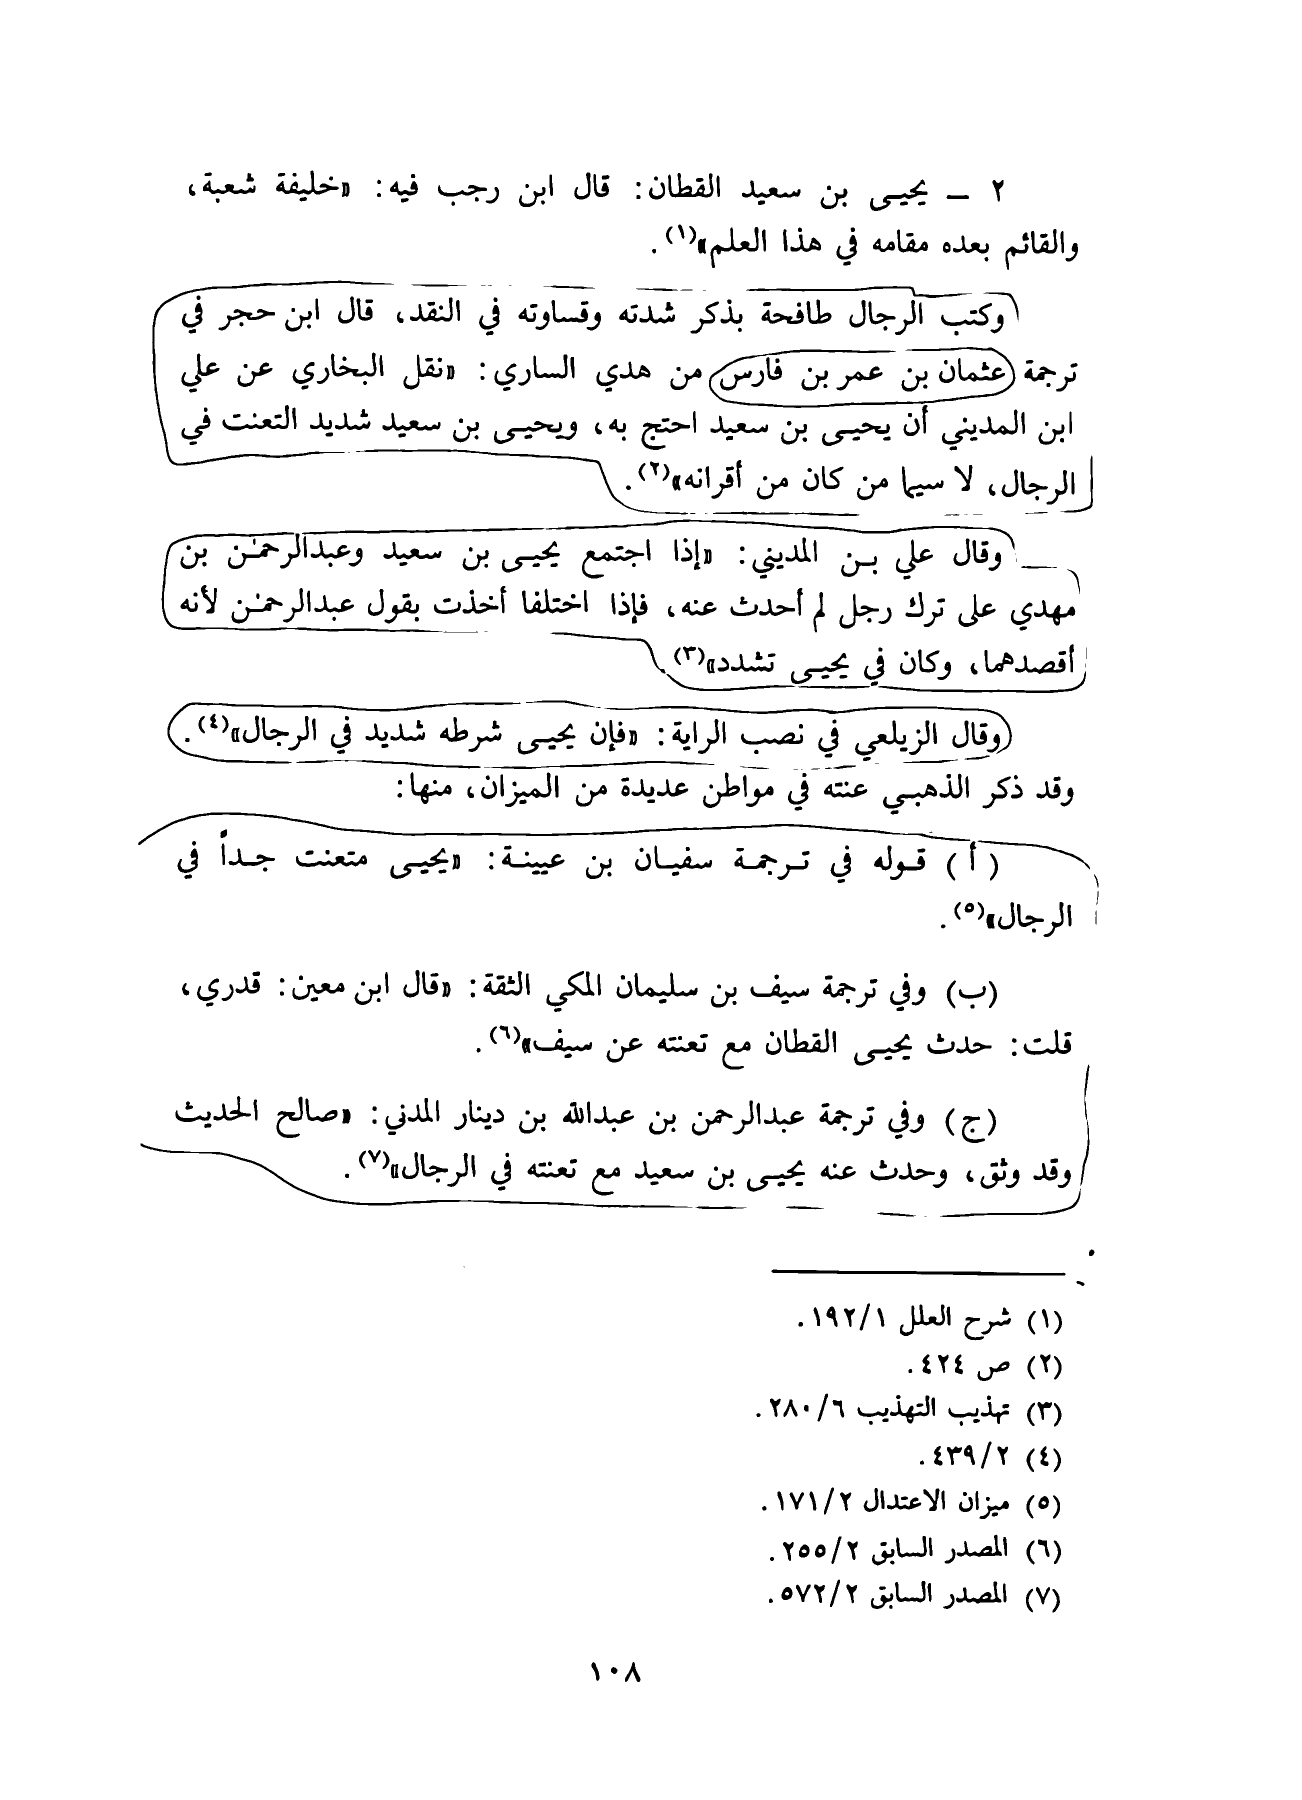 ٢ ــ يحيـى بن سعيد القطان: قال ابن رجب فيه: «خليفة شعبة،
والقائم بعده مقامه في هذا العلم»(١).
وكتب الرجال طافحة بذكر شدته وقساوته في النقد، قال ابن حجر في
ترجمة عثمان بن عمر بن فارس من هدي الساري: «نقل البخاري عن علي
ابن المديني أن يحيـى بن سعيد احتج به، ويحيـى بن سعيد شديد التعنت في
الرجال، لا سيما من كان من أقرانه»(٢).
وقال علي بـن المديني: «إذا اجتمع يحيـى بن سعيد وعبدالرحمٰن بن
مهدي على ترك رجل لم أحدث عنه، فإذا اختلفا أخذت بقول عبدالرحمٰن لأنه
أقصدهما، وكان في يحيـى تشدد»(٣)
وقال الزيلعي في نصب الراية: «فإن يحيـى شرطه شديد في الرجال»(٤).
وقد ذكر الذهبـي عنته في مواطن عديدة من الميزان، منها:
(أ) قـوله في تـرجمـة سفيـان بن عيينـة: «يحيـى متعنت جـداً في
الرجال»(٥).
(ب) وفي ترجمة سيف بن سليمان المكي الثقة: «قال ابن معين: قدري،
قلت: حدث يحيـى القطان مع تعنته عن سيف»(٦).
(ج) وفي ترجمة عبدالرحمن بن عبدالله بن دينار المدني: «صالح الحديث
وقد وثق، وحدث عنه يحيـى بن سعيد مع تعنته في الرجال»(٧).
(١) شرح العلل ١٩٢/١.
(٢) ص ٤٢٤.
(٣) تهذيب التهذيب ٢٨٠/٦.
(٤) ٤٣٩/٢.
(٥) ميزان الاعتدال ١٧١/٢.
(٦) المصدر السابق ٢٥٥/٢.
(٧) المصدر السابق ٥٧٢/٢.
١٠٨